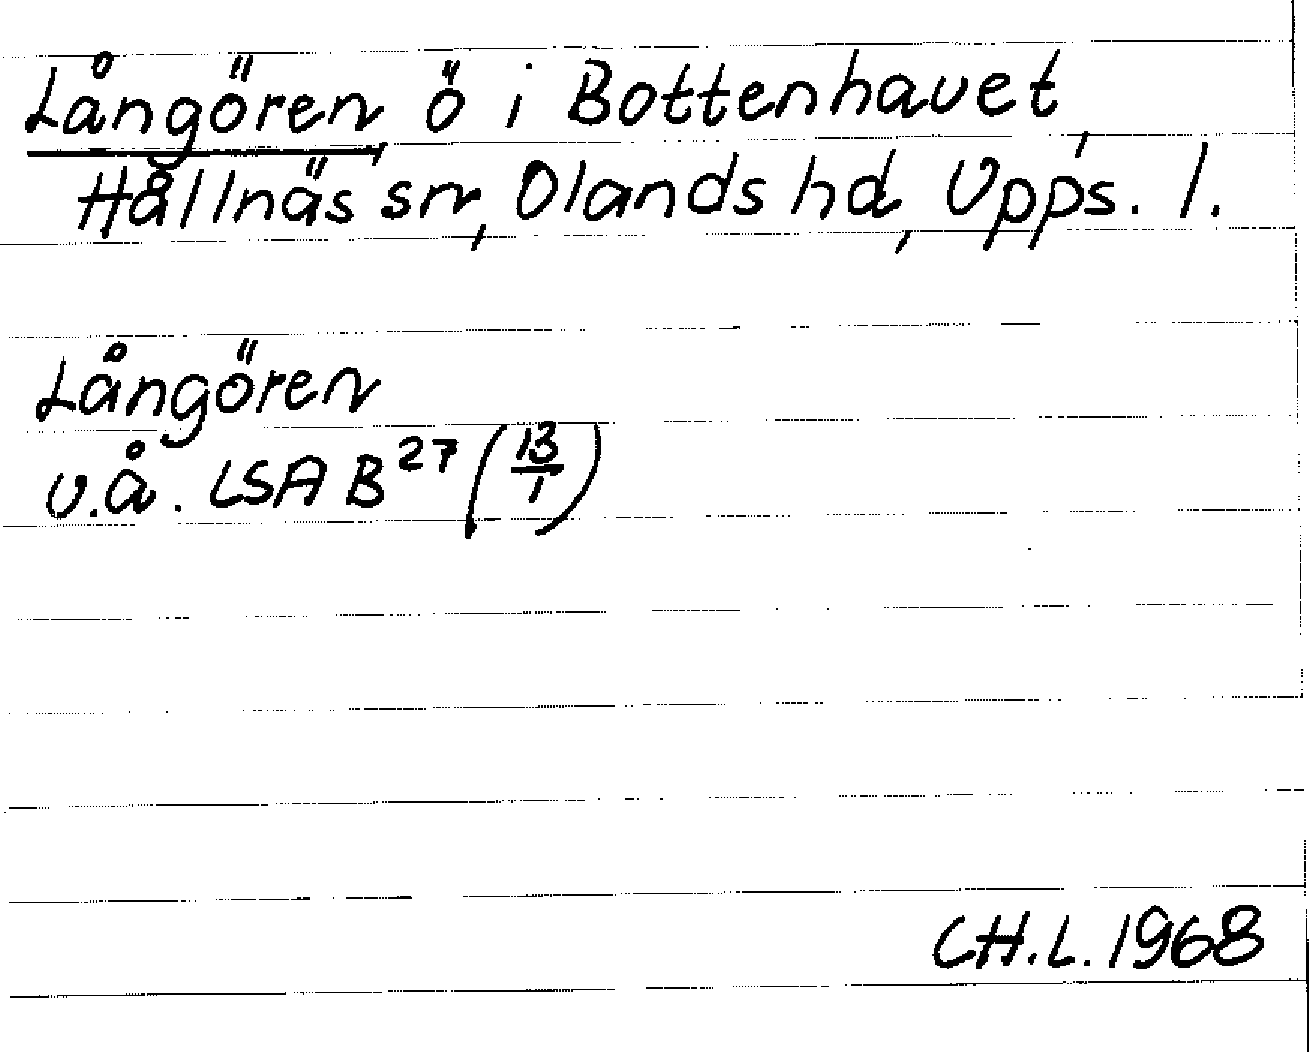 Långören, ö i Bottenhavet,
Hållnäs sn, Olands hd, Upps. l.
Långören
u.å. LSA B 27 (13/1)
CH.L. 1968